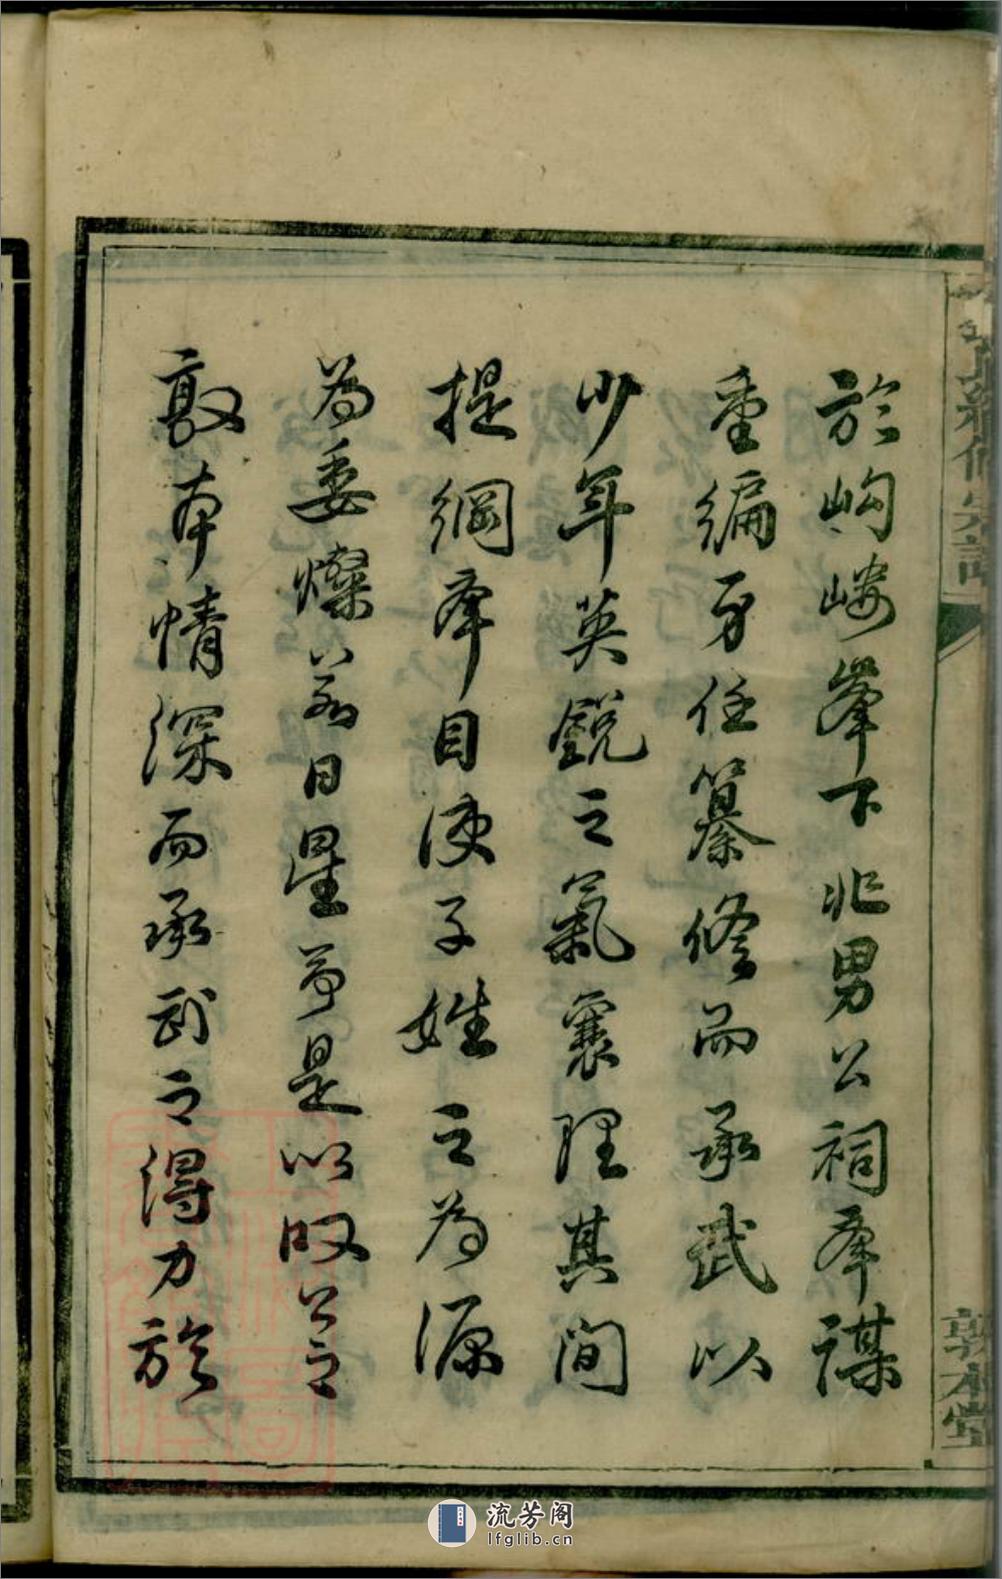 於岣嶁峯下兆男公祠舉謀
重編身任纂修而承武以
少年英銳之氣襄理其間
提綱舉目使子姓之為源
為委燦若日星予是以嘆公之
敦本情深而承武之得力於
續修宗譜
敦本堂
流芳阁
lfglib.cn